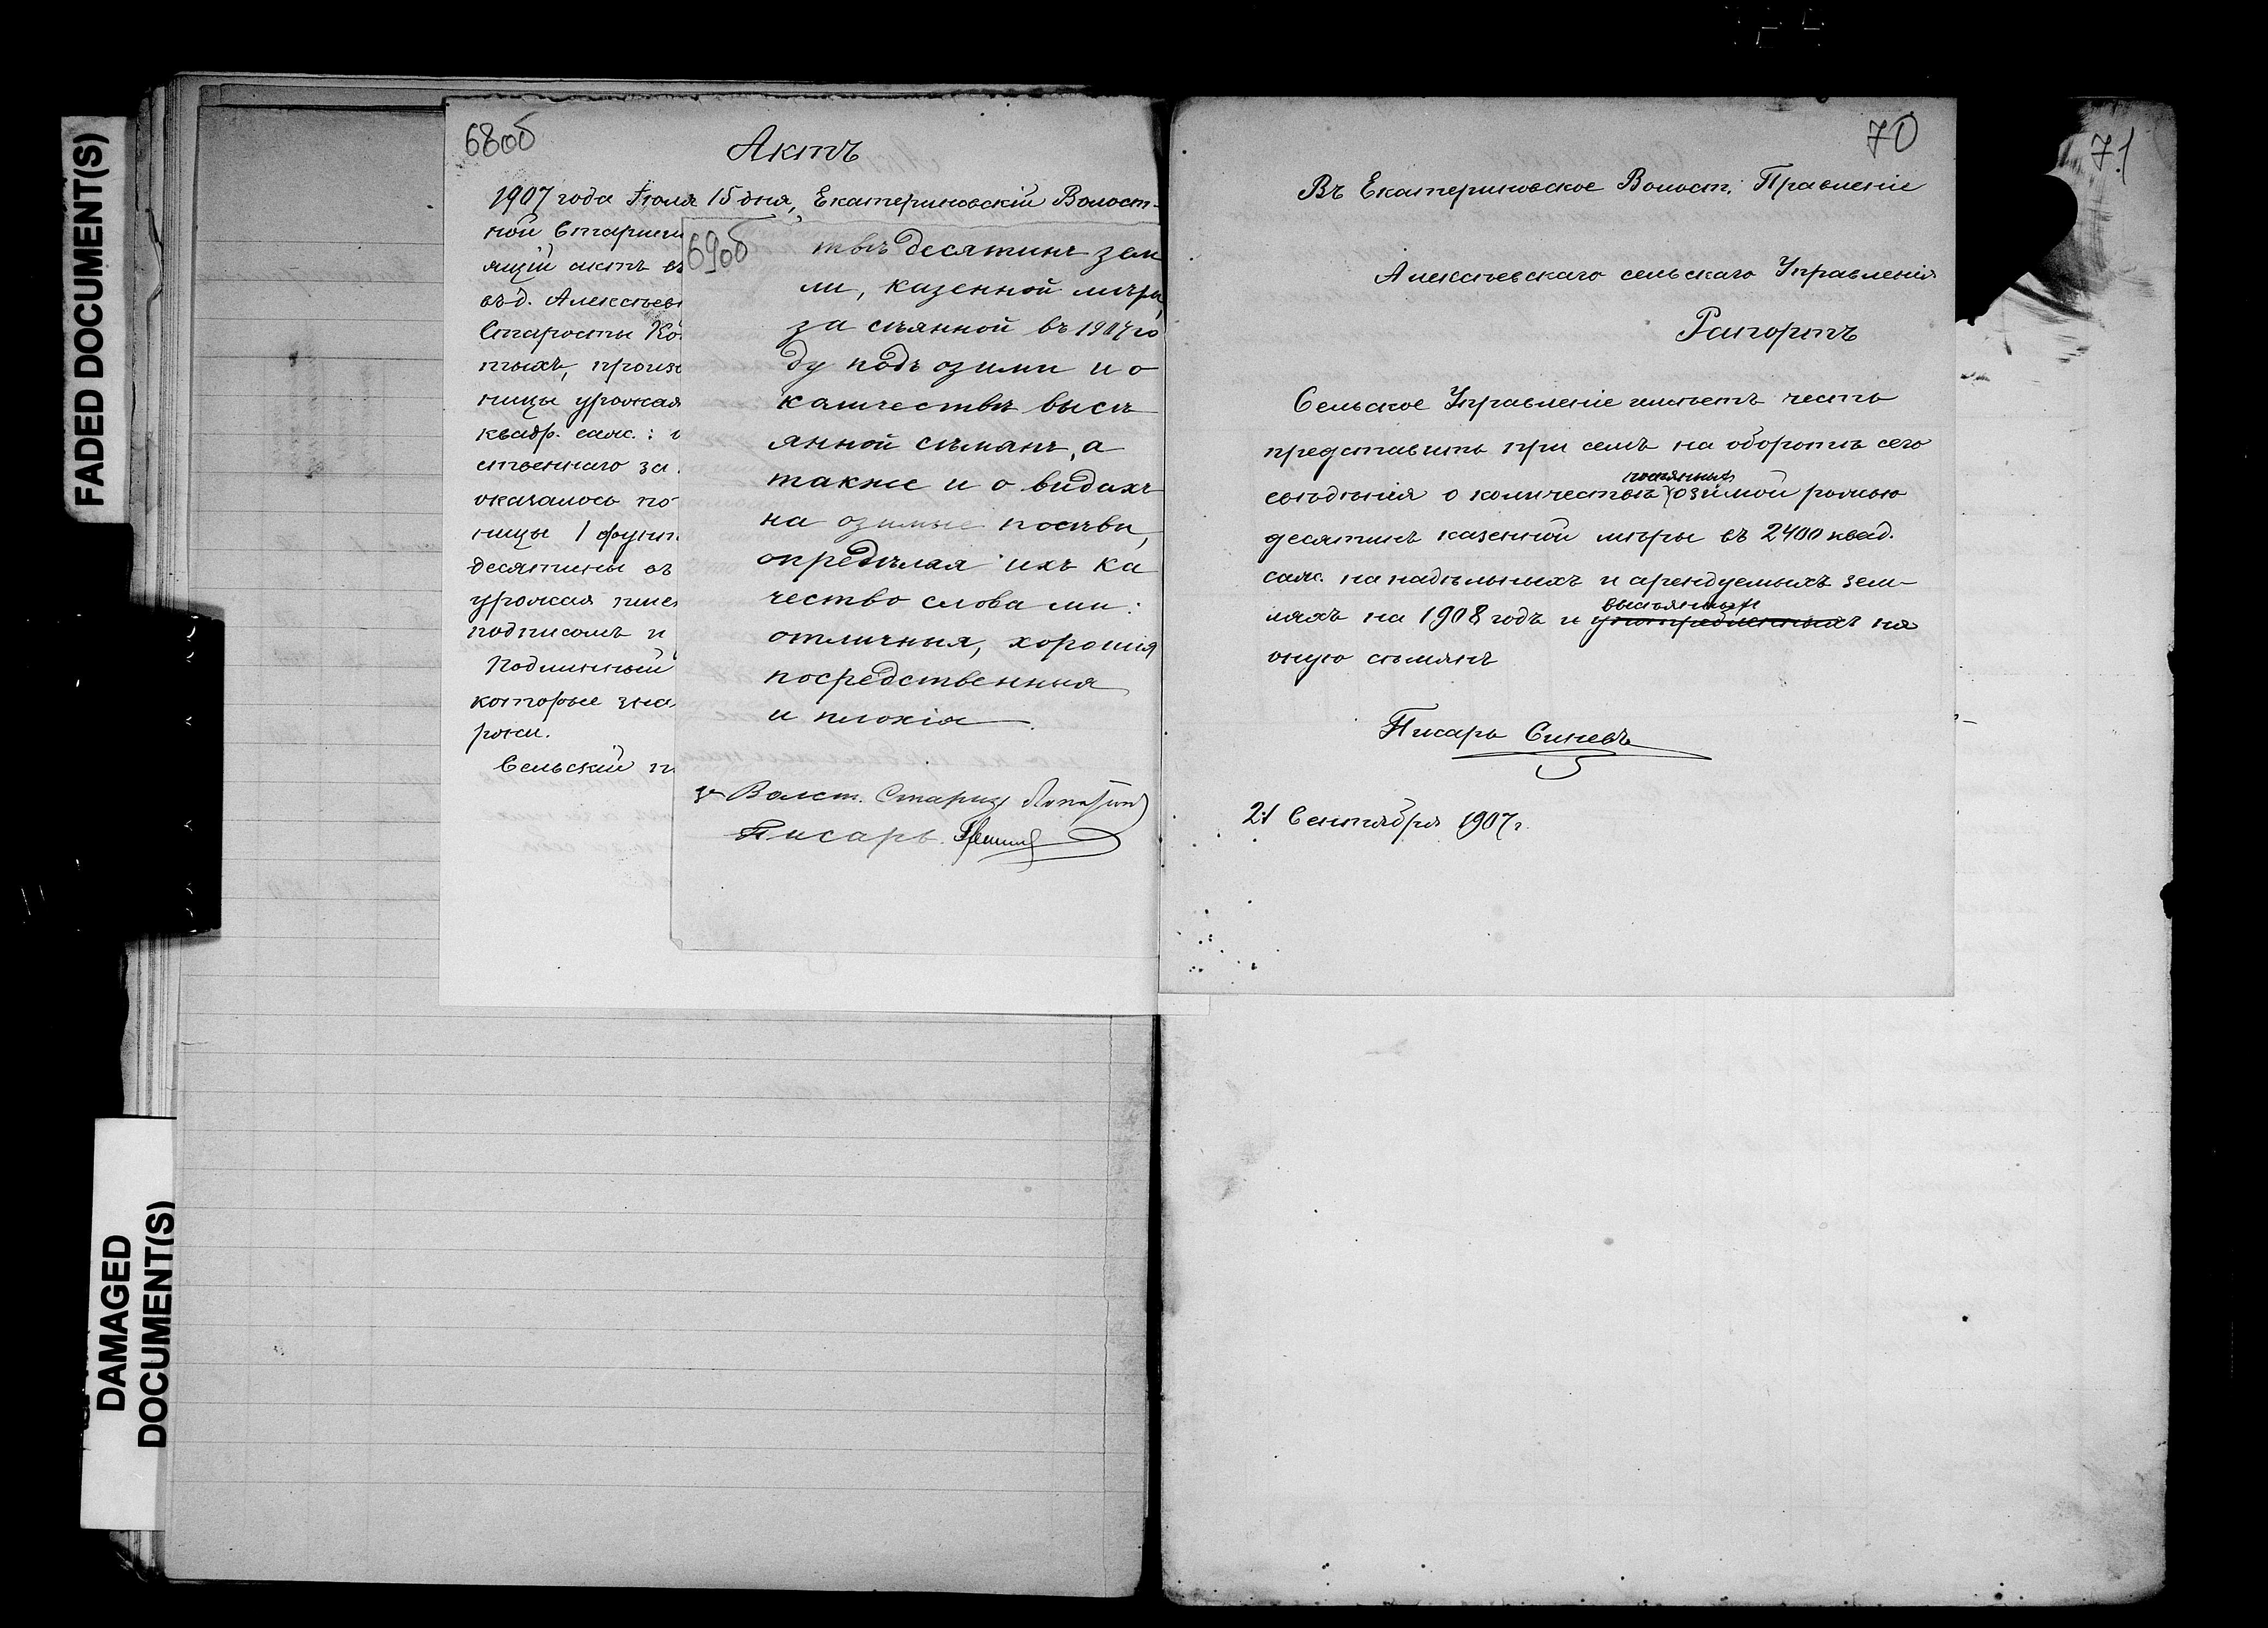 FADED DOCUMENT(S)
DAMAGED
DOCUMENT(S)
68об
Актъ
1907 года Іюля 15 дня, Екатериновскій Волост-
ной Старши
ящій актъ въ
въ д. Алексѣев
Старосты Ко
тыхъ, произв
ницы урожая
квадр. саж.: и
ственнаго за
оказалось по
ницы 1 фунт
десятины въ
урожая пше
подписомъ и
Подлинный
которые зна
рожи.
Сельскій п
69об
твѣ десятинъ зем
ли, казенной мѣры,
за сѣянной въ 1907 го
ду подъ озими и о
каличествѣ высѣ
янной сѣмянъ, а
также и о видахъ
на озимые посѣвы,
опредѣляя ихъ ка
чество слова ми:
отличныя, хорошія
посредственныя
и плохія
Волст. Старш
Писарь
70
Въ Екатериновское Волост. Правленіе
Алексѣевскаго сельскаго Управленія
Рапортъ
Сельское Управленіе имѣетъ честь
представить при семъ на оборотѣ сего
посѣянныхъ
свѣдѣнія о количествѣ озимой рожью
десятинъ казенной мѣры въ 2400 квад.
саж. на надѣльныхъ и арендуемыхъ зем-
высѣянныхъ
ляхъ на 1908 годъ и употребленныхъ на
оную сѣмянъ
Писарь Синевъ
21 Сентября 1907 г.
71